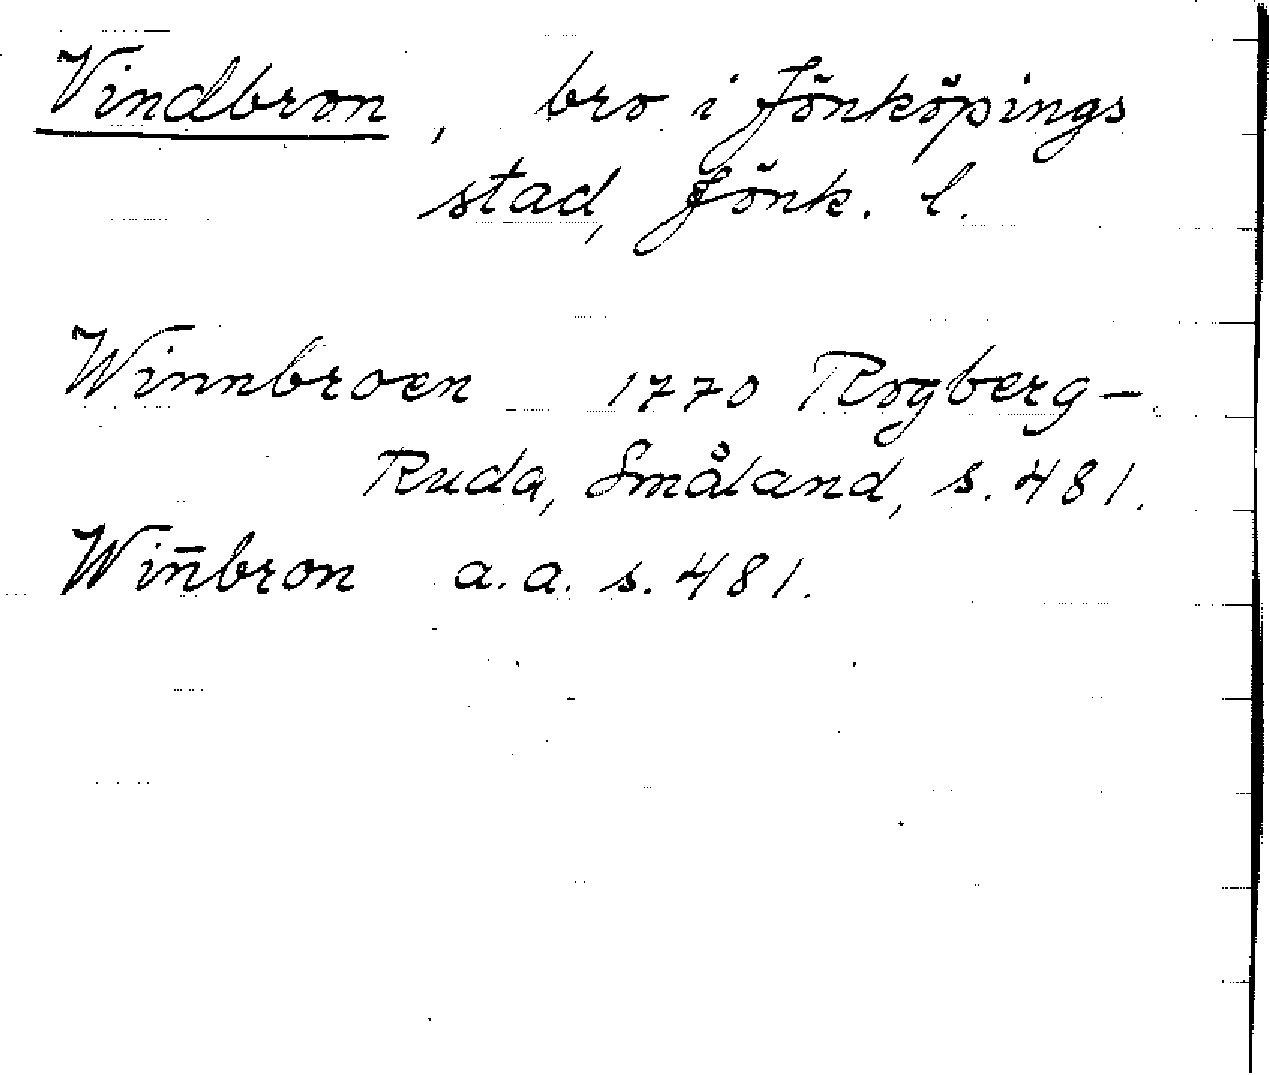 Vindbron, bro i Jönköpings
stad, Jönk. l.
Winnbroen 1770 Rogberg-
Ruda, Småland, s. 481.
Win̄bron a. a. s. 481.